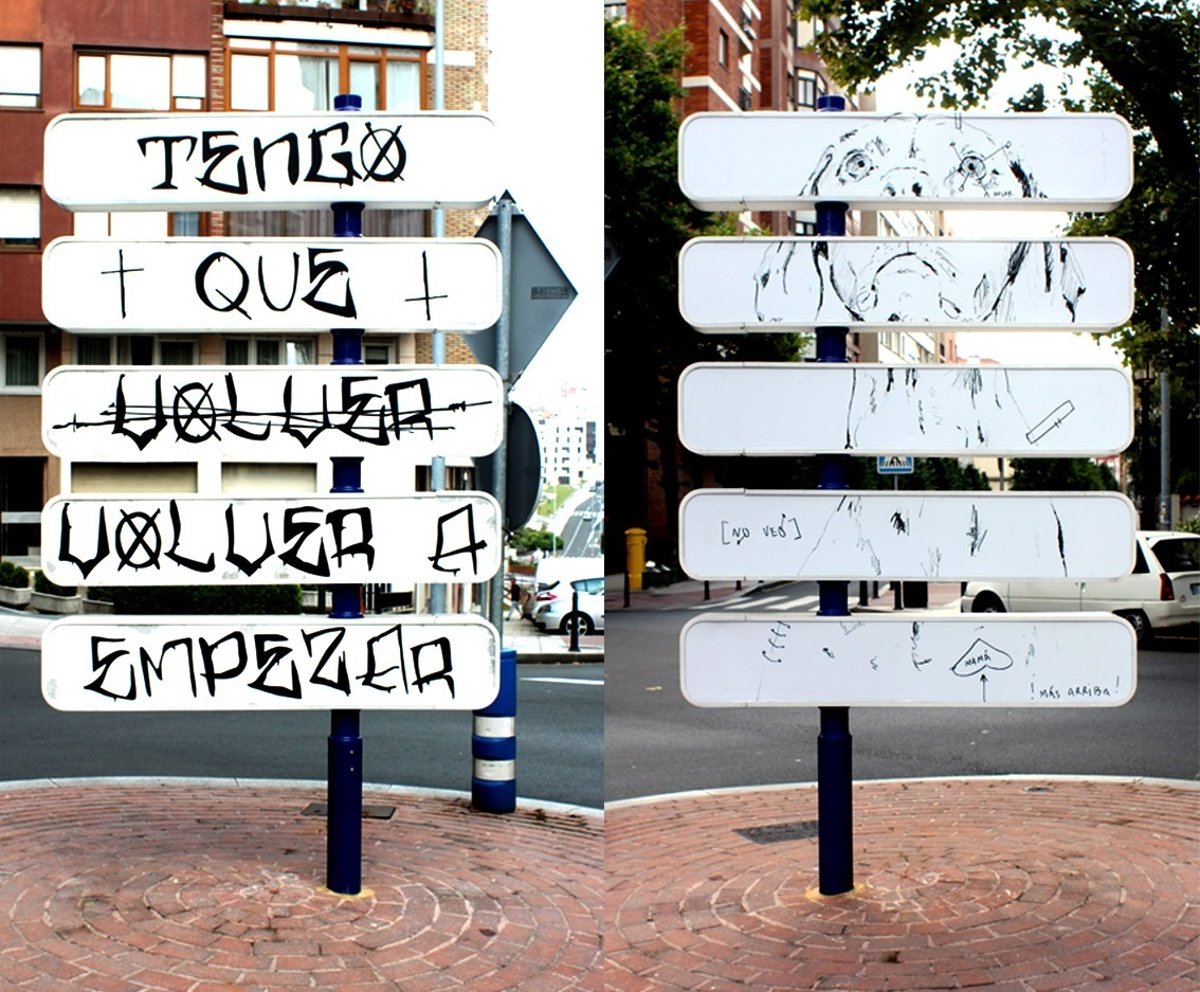 TENGO
QUE
VOLVER
VOLVER A
EMPEZAR
[NO VEO]
MAMÁ
¡MÁS ARRIBA!